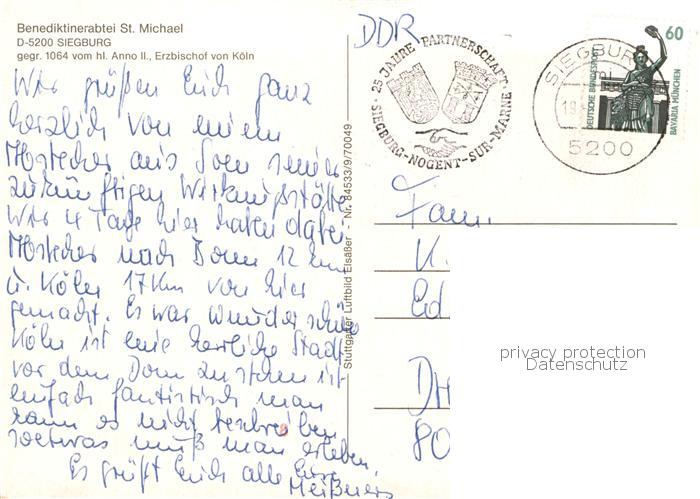 Benediktinerabtei St. Michael
D-5200 SIEGBURG
gegr. 1064 vom hl. Anno II., Erzbischof von Köln
Wir grüßen Euch ganz
herzlich von einem
Abstecher aus seiner
zukünftigen Wirkungsstätte
Wir 4 Tage hier haben dabei
Abstecher nach Bonn 12 km
u. Köln 17 km von hier
gemacht. Es war wunderschön
Köln ist eine herrliche Stadt
vor dem Dom zu stehen ist
einfach fantistisch man
kann es nicht beschreiben
soetwas muß man erleben.
Es grüßt Euch alle Eure
Meißners
Stuttgarter Luftbild Elsäßer - Nr. 84533/9/70049
DDR
25 JAHRE PARTNERSCHAFT
SIEGBURG-NOGENT-SUR-MARNE
SIEGBURG
5200
60
DEUTSCHE BUNDESPOST
BAVARIA MÜNCHEN
Fam.
K.
Ed
DH
80
privacy protection
Datenschutz